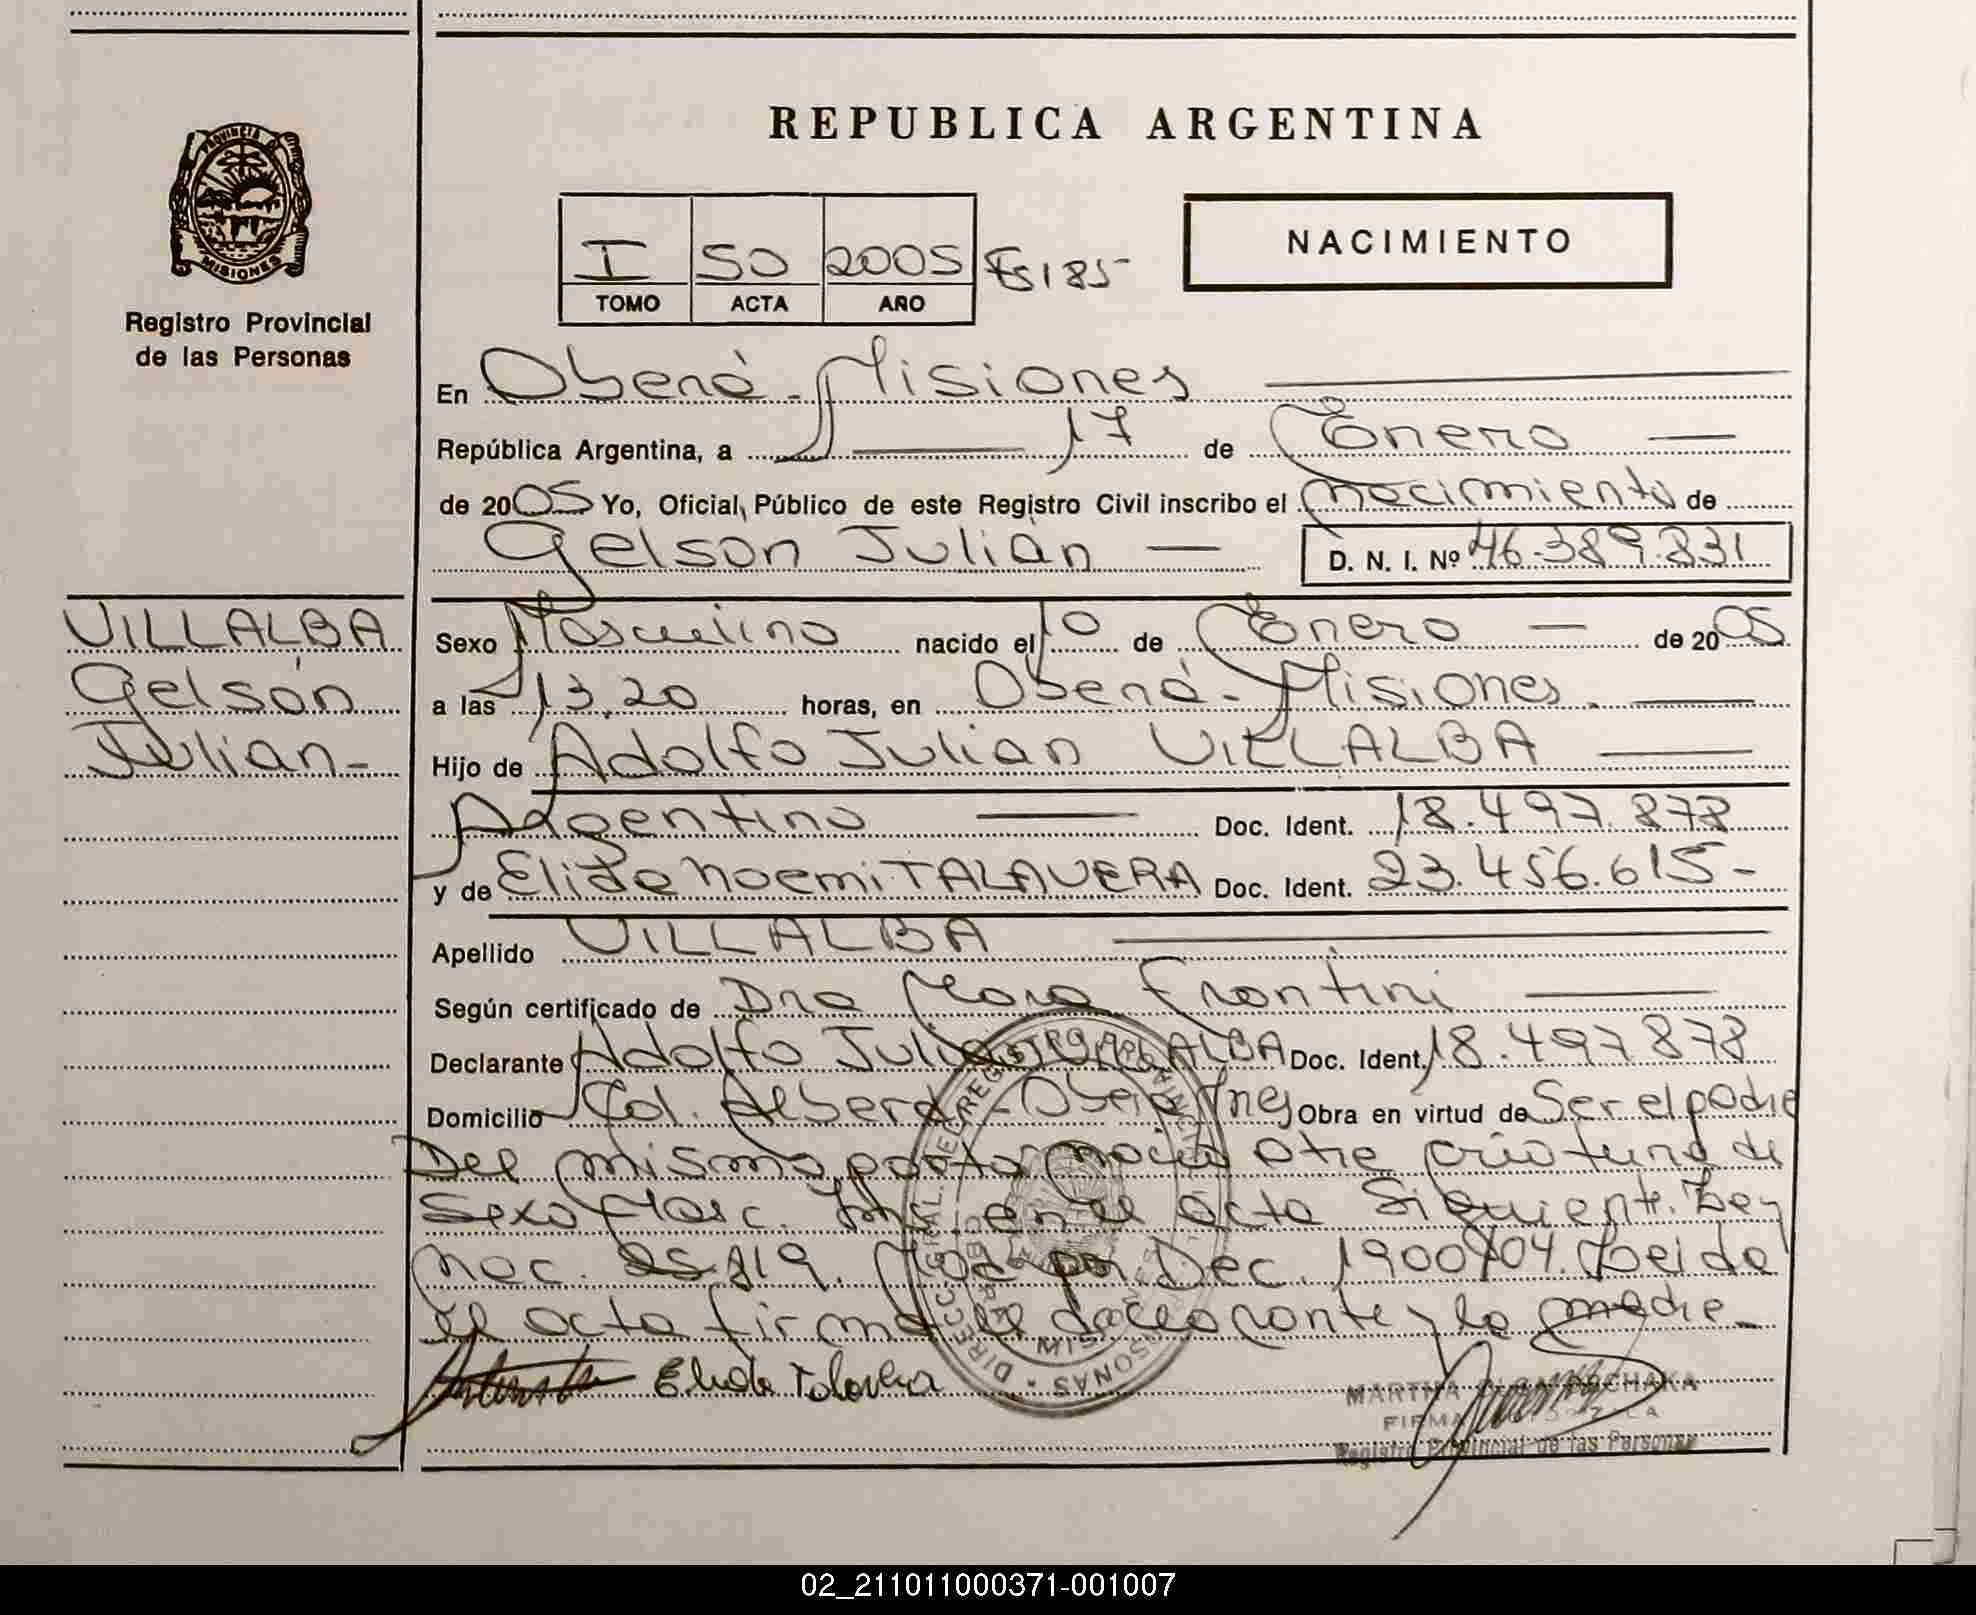 REPUBLICA ARGENTINA
PROVINCIA DE
MISIONES
Registro Provincial
de las Personas
I 50 2005 Fs 185
TOMO ACTA AÑO
NACIMIENTO
En Oberá - Misiones
República Argentina, a 17 de Enero
de 2005 Yo, Oficial Público de este Registro Civil inscribo el nacimiento de
Gelson Julián D. N. I. Nº 46.389.831
VILLALBA
Gelson
Julian-
Sexo Masculino nacido el 10 de Enero de 2005
a las 13,20 horas, en Oberá - Misiones.
Hijo de Adolfo Julian VILLALBA
Argentino Doc. Ident. 18.497.878
y de Elida Noemi TALAVERA Doc. Ident. 23.456.615-
Apellido VILLALBA
Según certificado de Dra Mara Frontini
Declarante Adolfo Julian VILLALBA Doc. Ident. 18.497 878
Domicilio Col. Alberdi - Oberá Mnes Obra en virtud de Ser el padre
Del mismo parto nació otra criatura de
Sexo Masc. Ins. en el acta Siguiente. Ley
Nac. 25.819. Mod por Dec. 1900/04. Leida
el acta firma el declarante y la madre-
Elida Talavera
MARTHA
FIRMA
Registro Provincial de las Personas
02_211011000371-001007